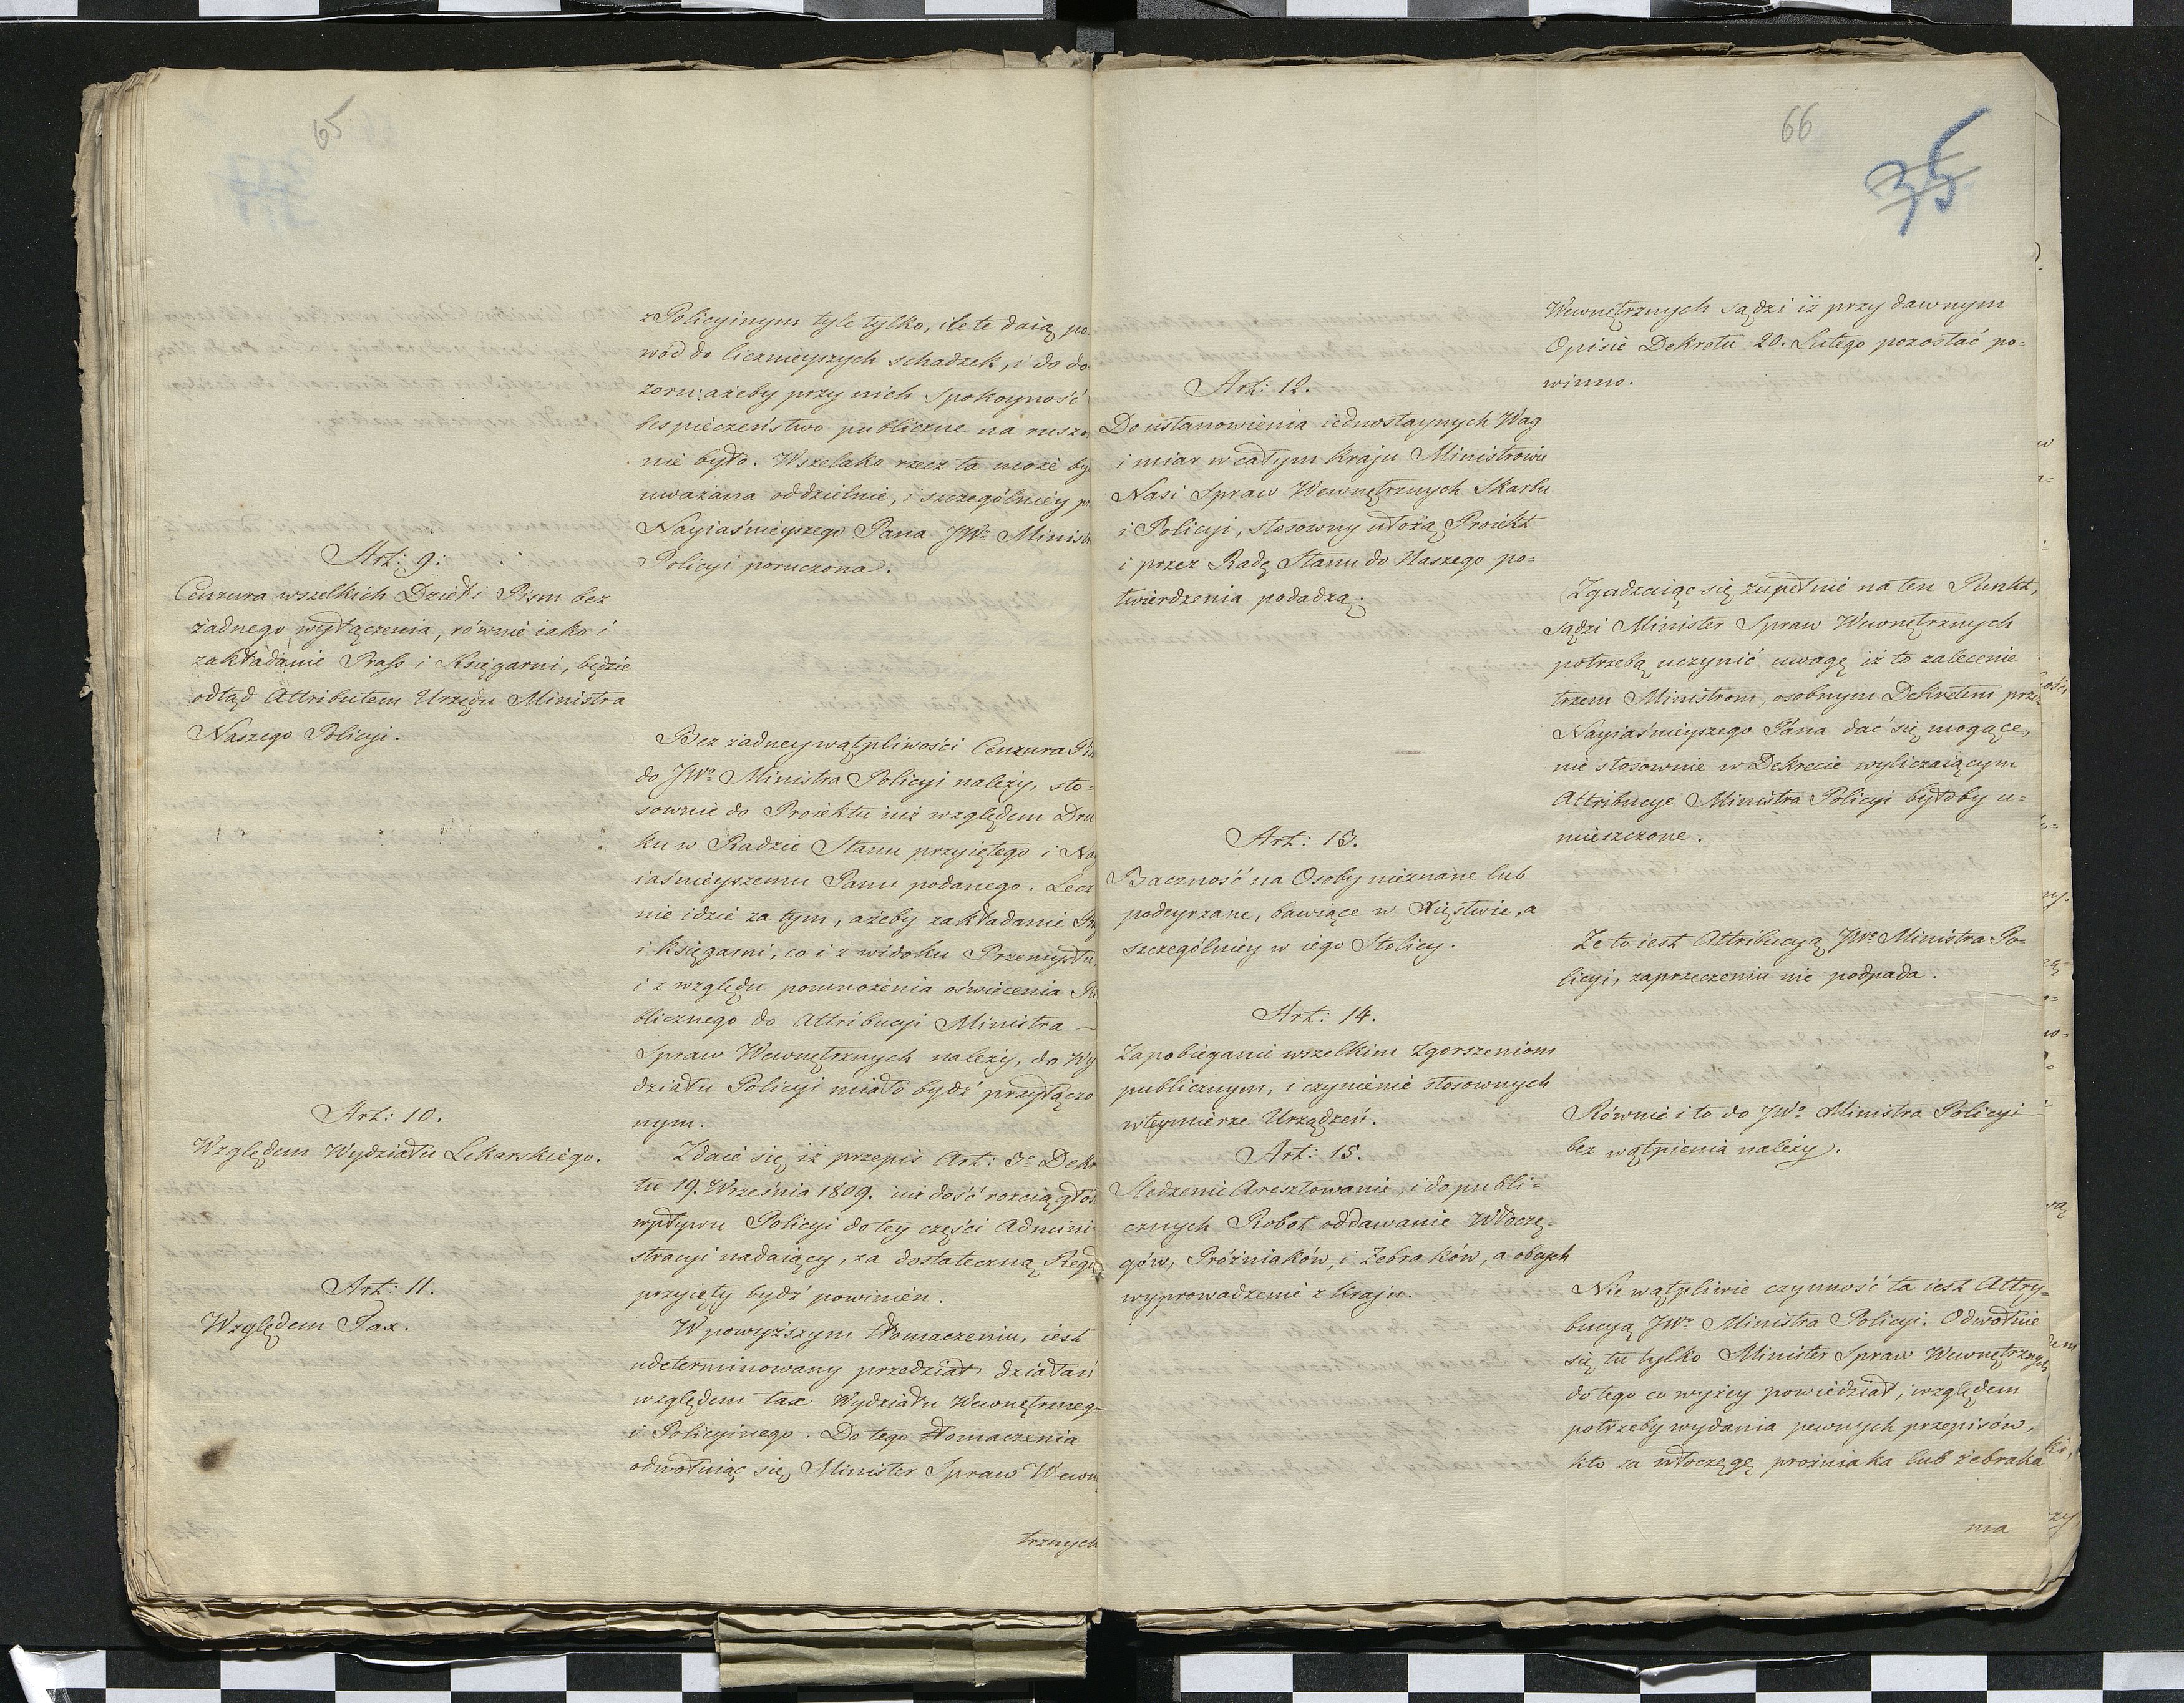 65
Art: 9:
Cenzura wszelkich Dzieł i Pism bez
żadnego wyłączenia, równie iako i
zakładanie Prass i Księgarni, będzie
odtąd Attributem Urzędu Ministra
Naszego Policyi.
Art: 10.
Względem Wydziału Lekarskiego.
Art: 11.
Względem Tax.
z Policyinym tyle tylko, ile te daią po
wód do licznieyszych schadzek, i do do
zoru: ażeby przy nich Spokoyność
bespieczeństwo publiczne na ruszo
nie było. Wszelako rzecz ta może by
uważana oddzielnie, i szczególniey
Nayiaśnieyszego Pana JWo Minist
Policyi poruczona.
Bez żadney wątpliwości Cenzura
do JWo Ministra Policyi należy, sto=
sownie do Proiektu iuż względem Dru
ku w Radzie Stanu przyiętego i Na
iaśnieyszemu Panu podanego. Lecz
nie idzie za tym, ażeby zakładanie
i księgarni, co i z widoku Przemysłu,
i z względu pomnożenia oświecenia
blicznego do Attribucyi Ministra —
Spraw Wewnętrznych należy, do Wy
działu Policyi miało bydź przyłączo
nym.
Zdaie się iż przepis Art: 3o Dekr
tu 19. Września 1809. iuż dość rozciągłoś
wpływu Policyi do tey części Admini
stracyi nadaiący, za dostateczną Reg
przyięty bydź powinien.
W powyższym tłomaczeniu, iest
udeterminowany przedział działań
względem tax Wydziału Wewnętrzneg
i Policyinego. Do tego tłomaczenia
odwołuiąc się Minister Spraw Wewn
trznych
66
35
Art: 12.
Do ustanowienia iednostaynych Wag
i miar w całym kraju Ministrowie
Nasi Spraw Wewnętrznych Skarbu
i Policyi, stosowny ułożą Proiekt
i przez Radę Stanu do Naszego po=
twierdzenia podadzą.
Art: 13.
Baczność na Osoby nieznane lub
podeyrzane, bawiące w Xięstwie, a
szczególniey w iego Stolicy.
Art: 14.
Zapobieganie wszelkim zgorszeniom
publicznym, i czynienie stosownych
w tey mierze Urządzeń.
Art: 15.
Sledzenie Aresztowanie, i do publi=
cznych Robot oddawanie Włoczę=
gów, Próżniaków, i Żebraków, a obcych
wyprowadzenie z kraju.
Wewnętrznych sądzi iż przy dawnym
Opisie Dekretu 20. Lutego pozostać po=
winno.
Zgadzaiąc się zupełnie na ten Punkt,
sądzi Minister Spraw Wewnętrznych
potrzebą uczynić uwagę iż to zalecenie
trzem Ministrom, osobnym Dekretem przez
Nayiaśnieyszego Pana dać się mogące,
nie stosownie w Dekrecie wyliczaiącym
Attribucye Ministra Policyi byłoby u=
mieszczone.
Ze to iest Attribucyą JWo Ministra Po=
licyi, zaprzeczeniu nie podpada.
Równie i to do JWo Ministra Policyi
bez wątpienia należy.
Nie wątpliwie czynność ta iest Attry=
bucyą JWo Ministra Policyi. Odwołuie
się tu tylko Minister Spraw Wewnętrznych
do tego co wyżey powiedział, względem
potrzeby wydania pewnych przepisów,
kto za włoczęgę prożniaka lub żebraka
ma